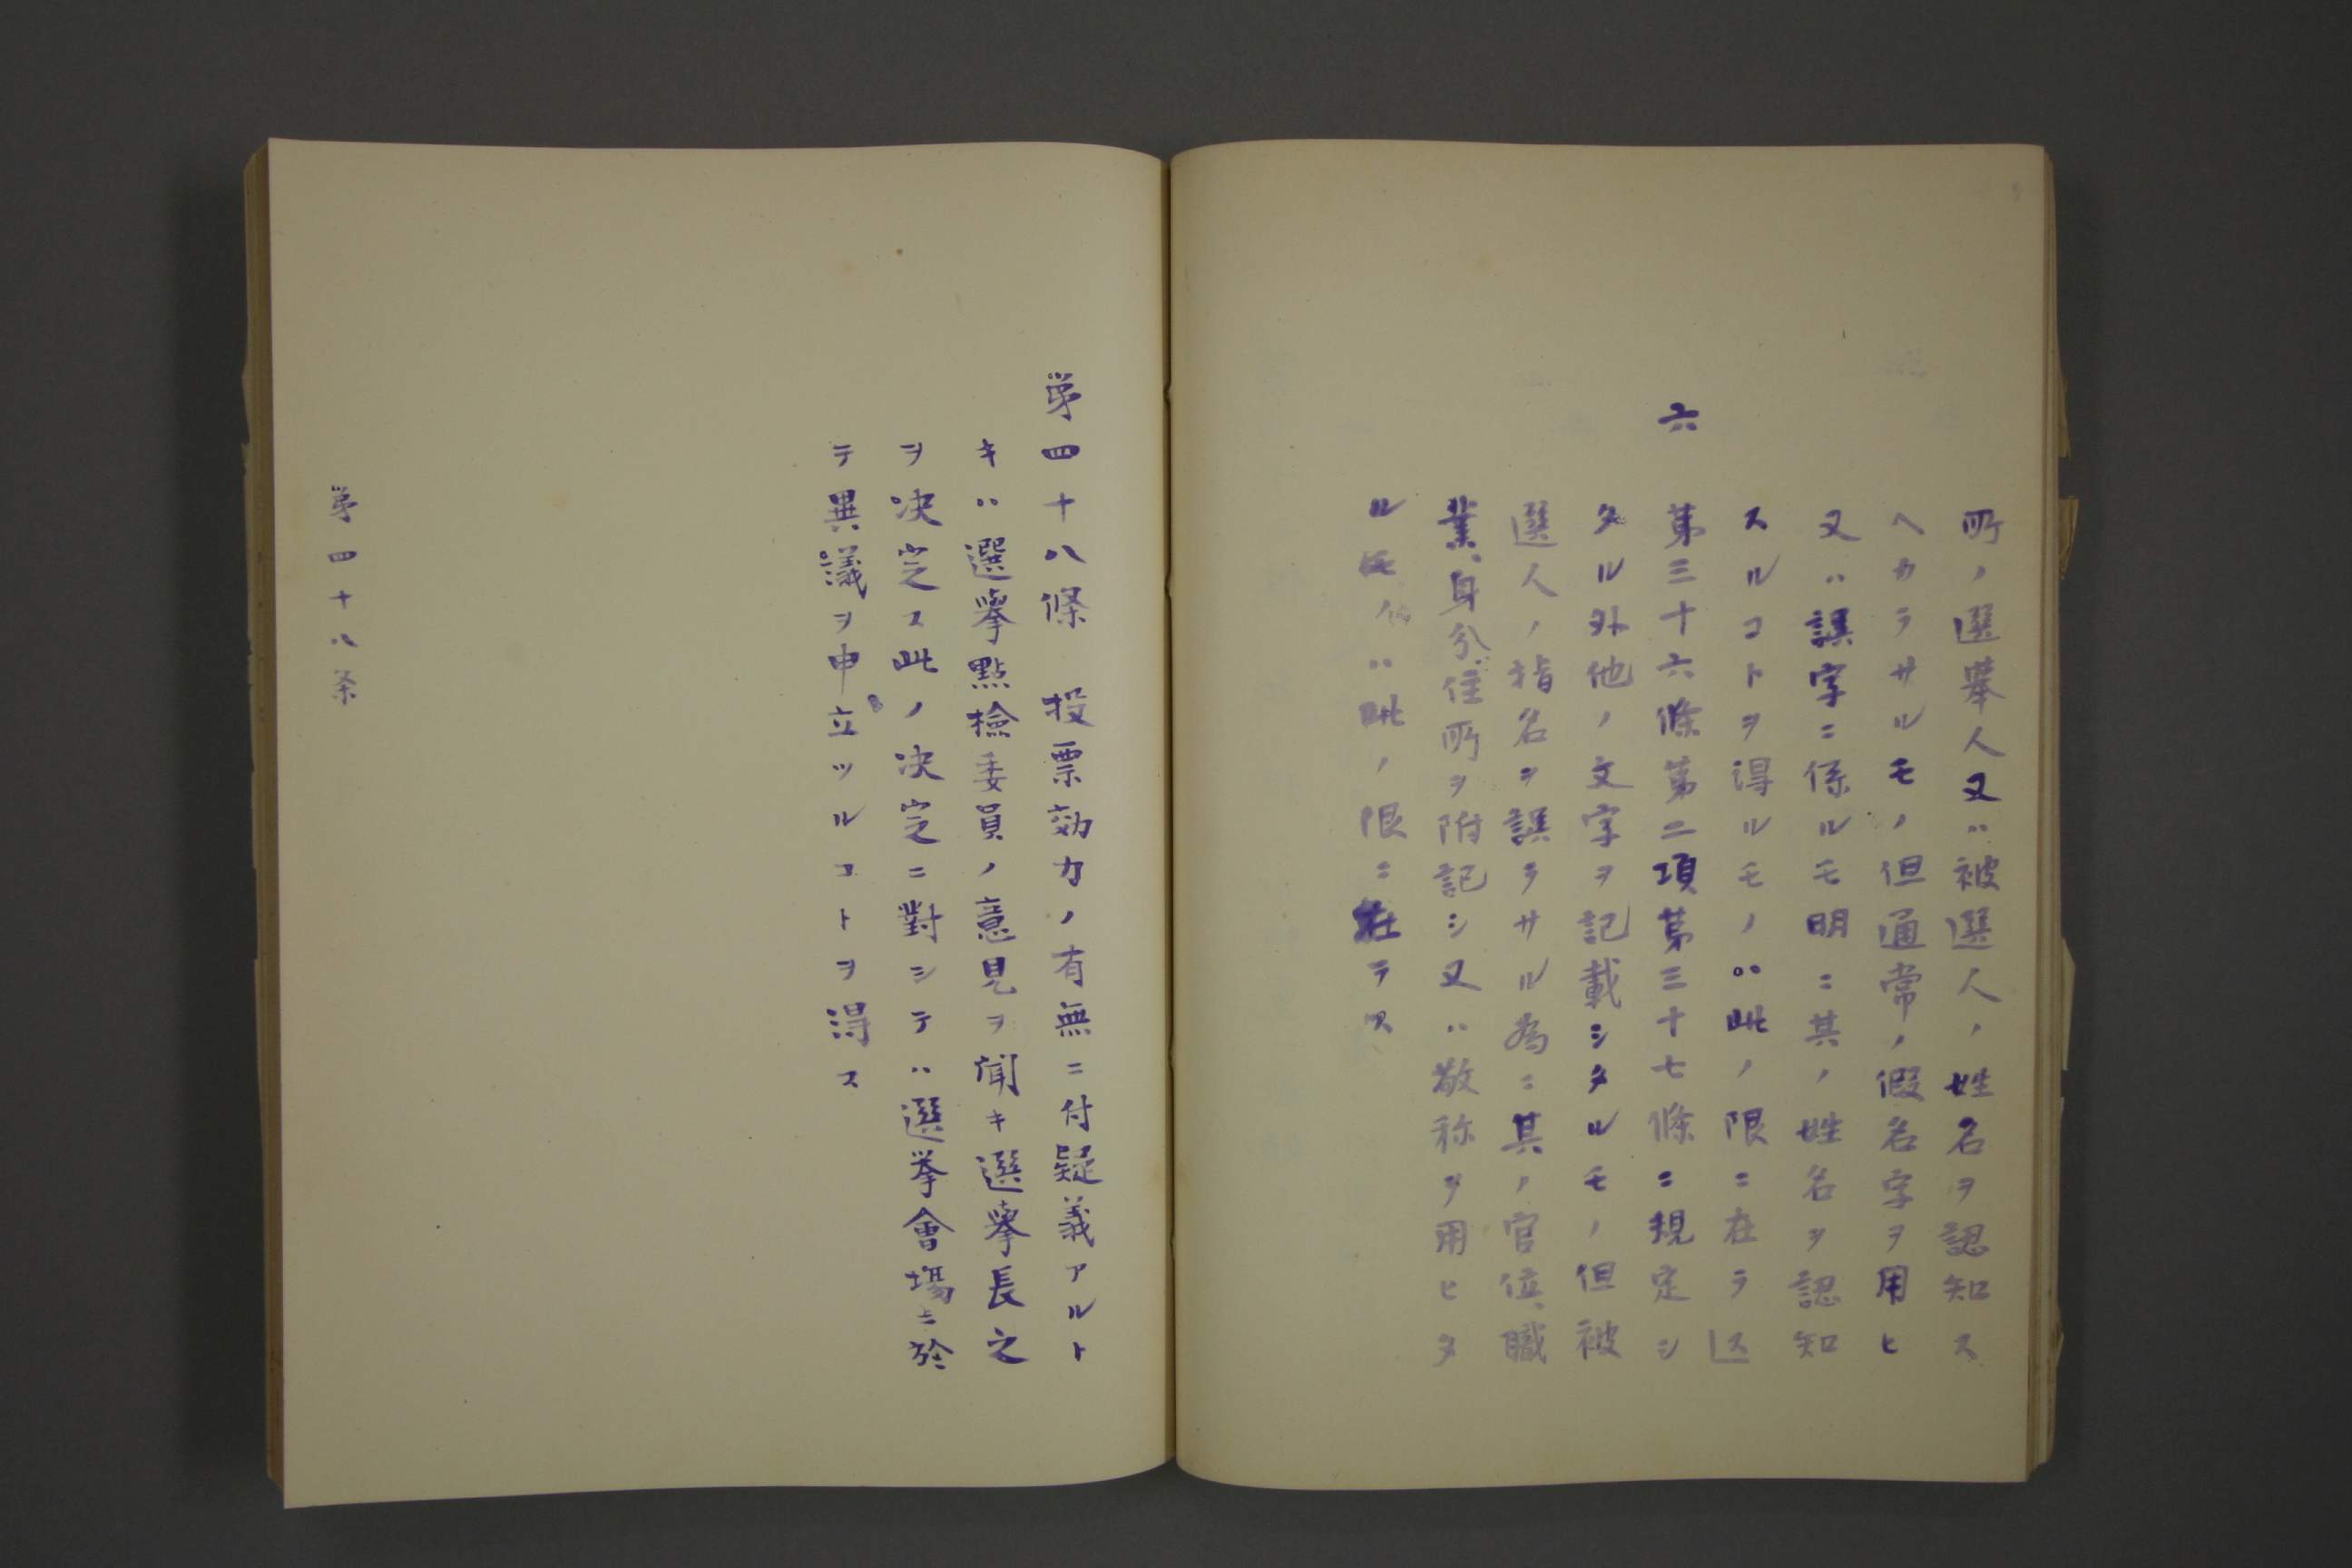 所ノ選挙人又ハ被選人ノ姓名ヲ認知ス
ヘカラサルモノ但通常ノ假名字ヲ用ヒ
又ハ誤字ニ係ルモ明ニ其ノ姓名ヲ認知
スルコトヲ得ルモノハ此ノ限ニ在ラス
六 第三十六條第二項第三十七條ニ規定シ
タル外他ノ文字ヲ記載シタルモノ但被
選人ノ指名ヲ誤ラサル為ニ其ノ官位、職
業、身分、住所ヲ附記シ又ハ敬称ヲ用ヒタ
ルモノハ此ノ限ニ在ラス
第四十八條 投票効力ノ有無ニ付疑義アルト
キハ選挙點檢委員ノ意見ヲ聞キ選挙長之
ヲ决定ス此ノ决定ニ對シテハ選挙會場ニ於
テ異議ヲ申立ツルコトヲ得ス
第四十八条